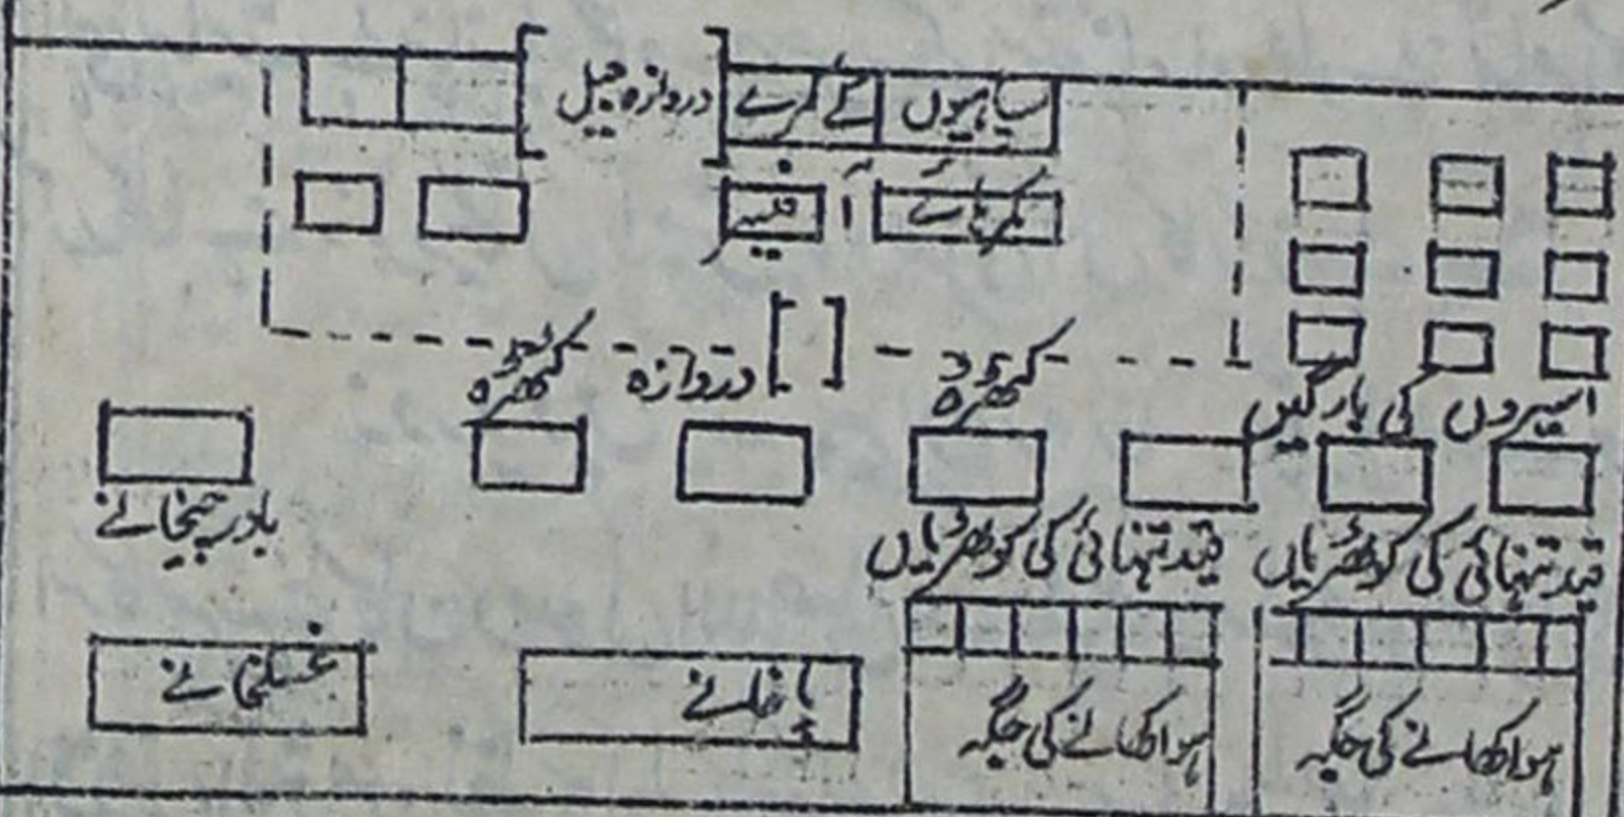 سپاہیوں کے کمرے
دروازہ جیل
کمرہائے آفیسر
کٹھرہ
دروازہ
کٹھرہ
اسیروں کی بارکیں
باورچیخانے
قید تنہائی کی کوٹھڑیاں
قید تنہائی کی کوٹھڑیاں
غسلخانے
پاخانے
ہوا کھانے کی جگہ
ہوا کھانے کی جگہ